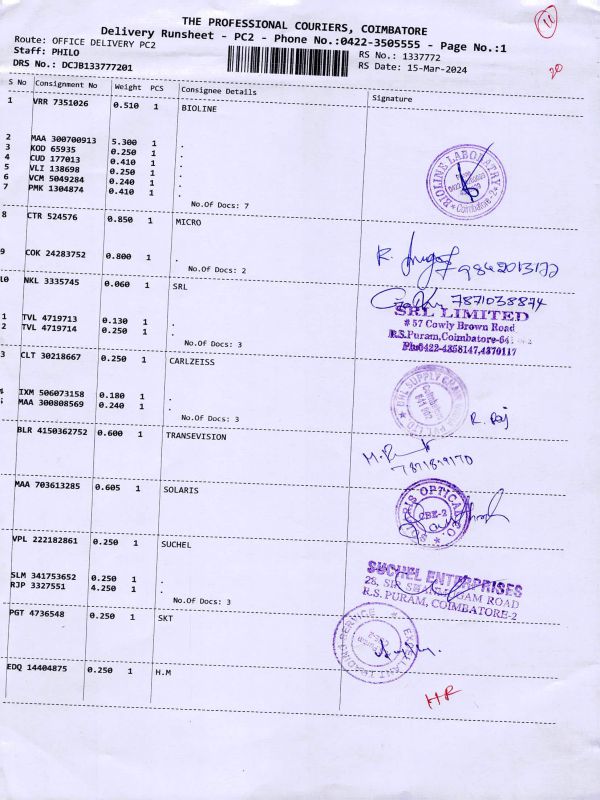 11
THE PROFESSIONAL COURIERS, COIMBATORE
Delivery Runsheet - PC2 - Phone No.:0422-3505555 - Page No.:1
20
Route: OFFICE DELIVERY PC2
RS No.: 1337772
Staff: PHILO
RS Date: 15-Mar-2024
DRS No.: DCJB133777201
S No Consignment No Weight PCS Consignee Details Signature
1 VRR 7351026 0.510 1 BIOLINE
2 MAA 300700913 5.300 1 .
3 KOD 65935 0.250 1 .
4 CUD 177013 0.410 1 .
5 VLI 138698 0.250 1 .
6 VCM 5049284 0.240 1 .
7 PMK 1304874 0.410 1 .
No.Of Docs: 7
BIOLINE LABORATRY
Coimbatore-2
8 CTR 524576 0.850 1 MICRO
9 COK 24283752 0.800 1 .
No.Of Docs: 2
R. 9842013172
10 NKL 3335745 0.060 1 SRL
7871038874
SRL LIMITED
# 57 Cowly Brown Road
R.S.Puram, Coimbatore-641
Ph:0422-4358147,4370117
1 TVL 4719713 0.130 1 .
2 TVL 4719714 0.250 1 .
No.Of Docs: 3
3 CLT 30218667 0.250 1 CARLZEISS
4 IXM 506073158 0.180 1 .
5 MAA 300808569 0.240 1 .
No.Of Docs: 3
DHL SUPPLY CHAIN
R. Raj
BLR 4150362752 0.600 1 TRANSEVISION
MAA 703613285 0.605 1 SOLARIS
SOLARIS OPTICAL CO
CBE-2
VPL 222182861 0.250 1 SUCHEL
SUCHEL ENTERPRISES
R.S. PURAM, COIMBATORE-2
SLM 341753652 0.250 1 .
RJP 3327551 4.250 1 .
No.Of Docs: 3
PGT 4736548 0.250 1 SKT
EDQ 14404875 0.250 1 H.M
HR